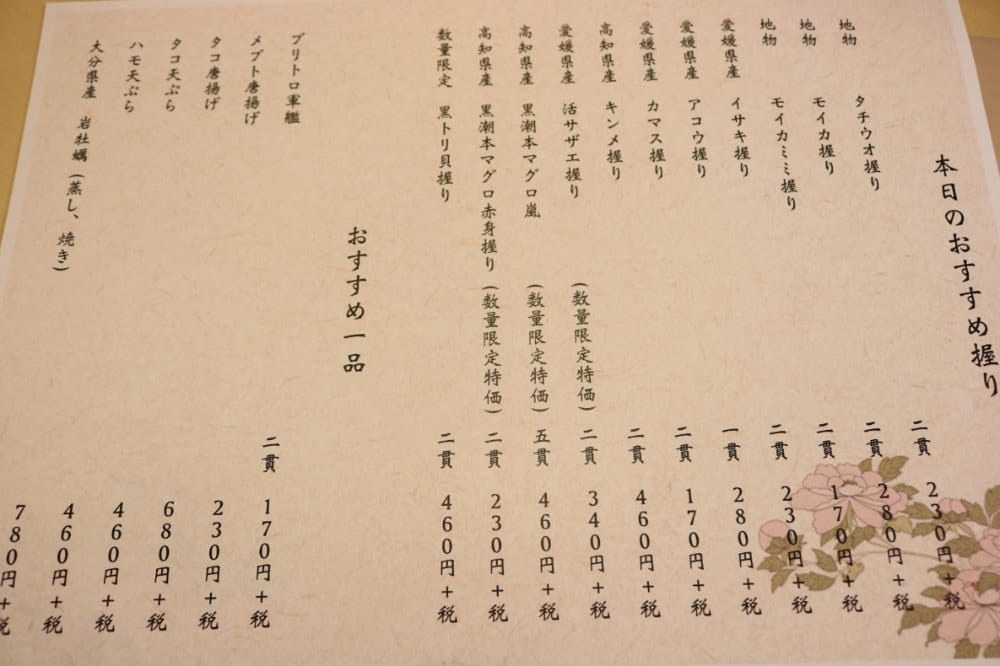 本日のおすすめ握り
地物 タチウオ握り 二貫 230円+税
地物 モイカ握り 二貫 280円+税
地物 モイカミミ握り 二貫 170円+税
愛媛県産 イサキ握り 二貫 230円+税
愛媛県産 アコウ握り 一貫 280円+税
愛媛県産 カマス握り 二貫 170円+税
高知県産 キンメ握り 二貫 460円+税
愛媛県産 活サザエ握り (数量限定特価) 二貫 340円+税
高知県産 黒潮本マグロ嵐 (数量限定特価) 五貫 460円+税
高知県産 黒潮本マグロ赤身握り (数量限定特価) 二貫 230円+税
数量限定 黒トリ貝握り 二貫 460円+税
おすすめ一品
ブリトロ軍艦 二貫 170円+税
メブト唐揚げ 230円+税
タコ唐揚げ 680円+税
タコ天ぷら 460円+税
ハモ天ぷら 460円+税
大分県産 岩牡蠣(蒸し、焼き) 780円+税